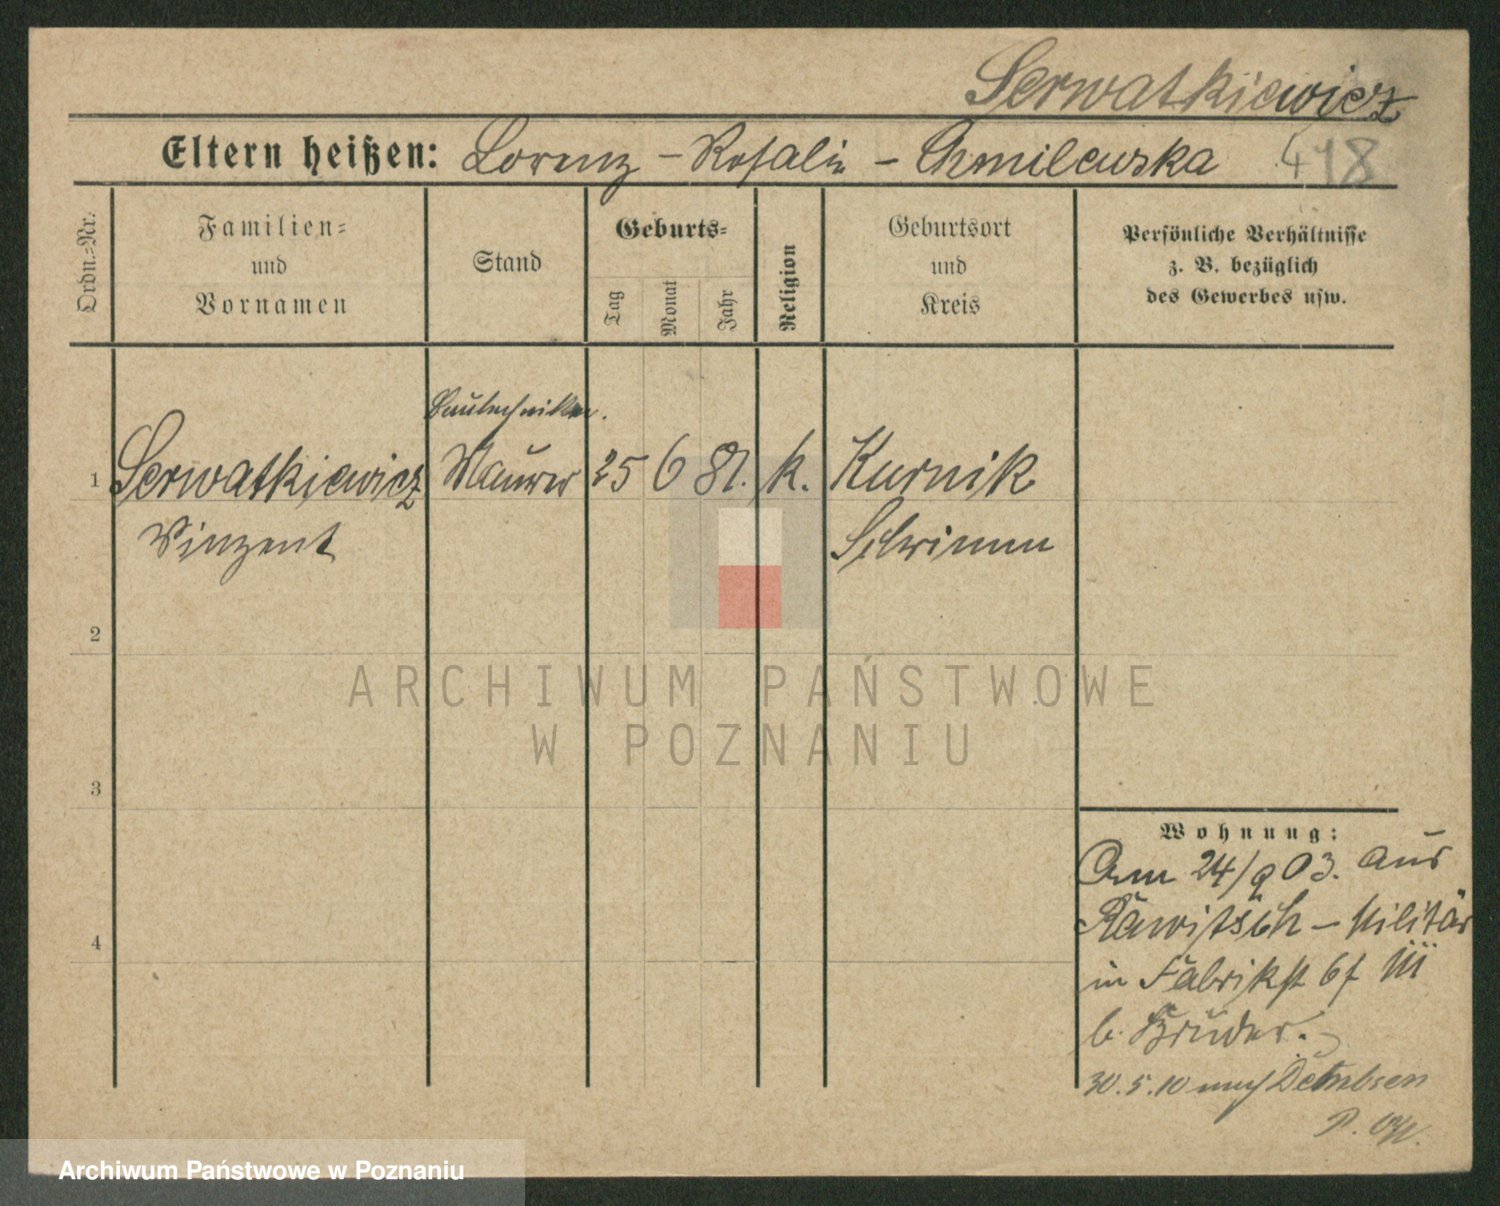 Serwatkiewicz
Eltern heißen: Lorenz – Rosalie – Chmilewska 418
Ordn.-Nr.
Familien=
und
Vornamen
Stand
Geburts=
Tag
Monat
Jahr
Religion
Geburtsort
und
Kreis
Persönliche Verhältnisse
z. B. bezüglich
des Gewerbes usw.
Bautechniker.
1 Serwatkiewicz Maurer 25 6 81. k. Kurnik
Vinzent Schrimm
2
ARCHIWUM PAŃSTWOWE
W POZNANIU
3
Wohnung:
Am 24/9 03. aus
Rawitsch – Militär
4
in Fabrikst 6 f III
b. Bruder.
30.5.10 nach
Archiwum Państwowe w Poznaniu